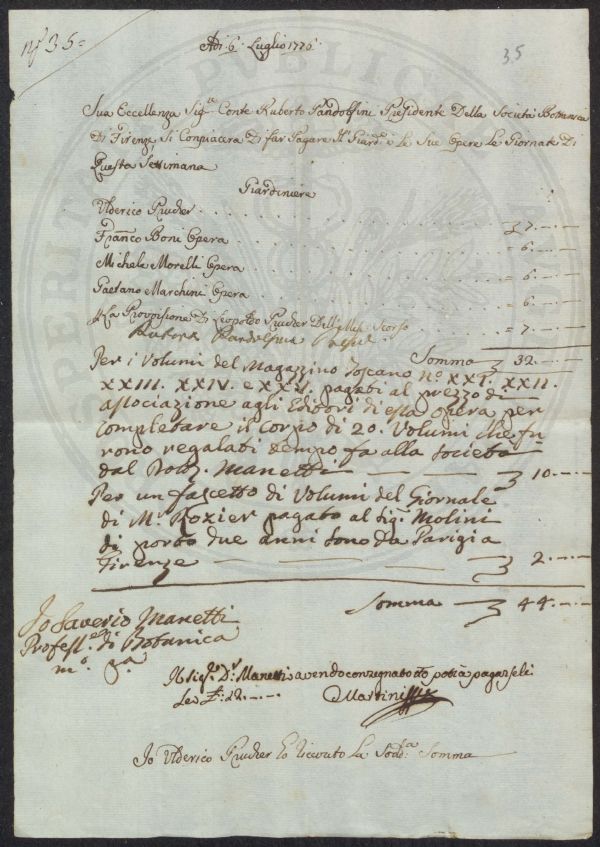 nº 35=
Adi: 6: Luglio 1776
35
Sua Eccellenza Sigre Conte Ruberto Pandolfini Presidente Della Società Botanica
Di Firenze Si Conpiacera Di far Pagare Il Giardre e Le Sue Opere Le Giornate Di
Questa Settimana
Giardiniere
Ulderico Prucker . . . . 7. — . —
Franco Boni Opera . . . . = 6. — . —
Michele Morelli Opera . . . . = 6. — . —
Gaetano Marchini Opera . . . . = 6 . — . —
La Provisione Di Leopoldo Prucker Dell Mese Scorso = 7. — . —
Ruberto Pandolfini
Somma 32. — . —
Per i Volumi del Magazzino Toscano No. XXI. XXII.
XXIII. XXIV. e XXV. pagati al prezzo di
associazione agli Editori di essa opera per
completare il corpo di 20. Volumi che fu
rono regalati tempo fa alla Società
dal Manetti — — — 10. — . —
Per un fascetto di Volumi del Giornale
di Mr. Rozier pagato al Sigr. Molini
di porto due anni sono da Parigi a
Firenze — — — 2. — . —
Somma — 44. — . —
Io Saverio Manetti
Professre di Botanica
mo. pa.
Il Sigre Dr. Manetti avendo consegnato potrà pagarseli
le 12. — . —
Martini
Io Ulderico Prucker ho ricevuto la Sodda Somma